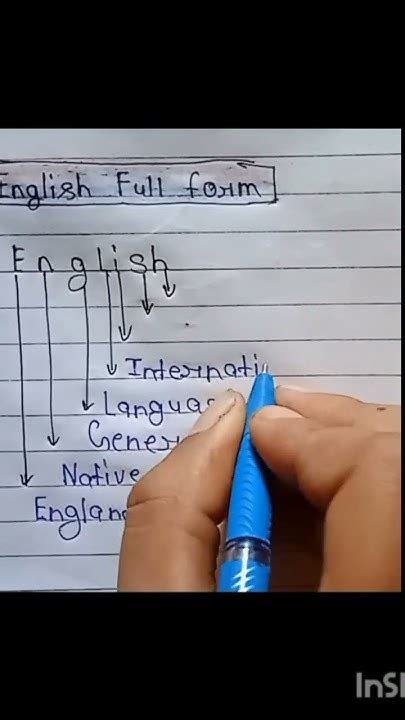 English Full form
English
Internati
Langua
Gener
Native
Englan
InSh